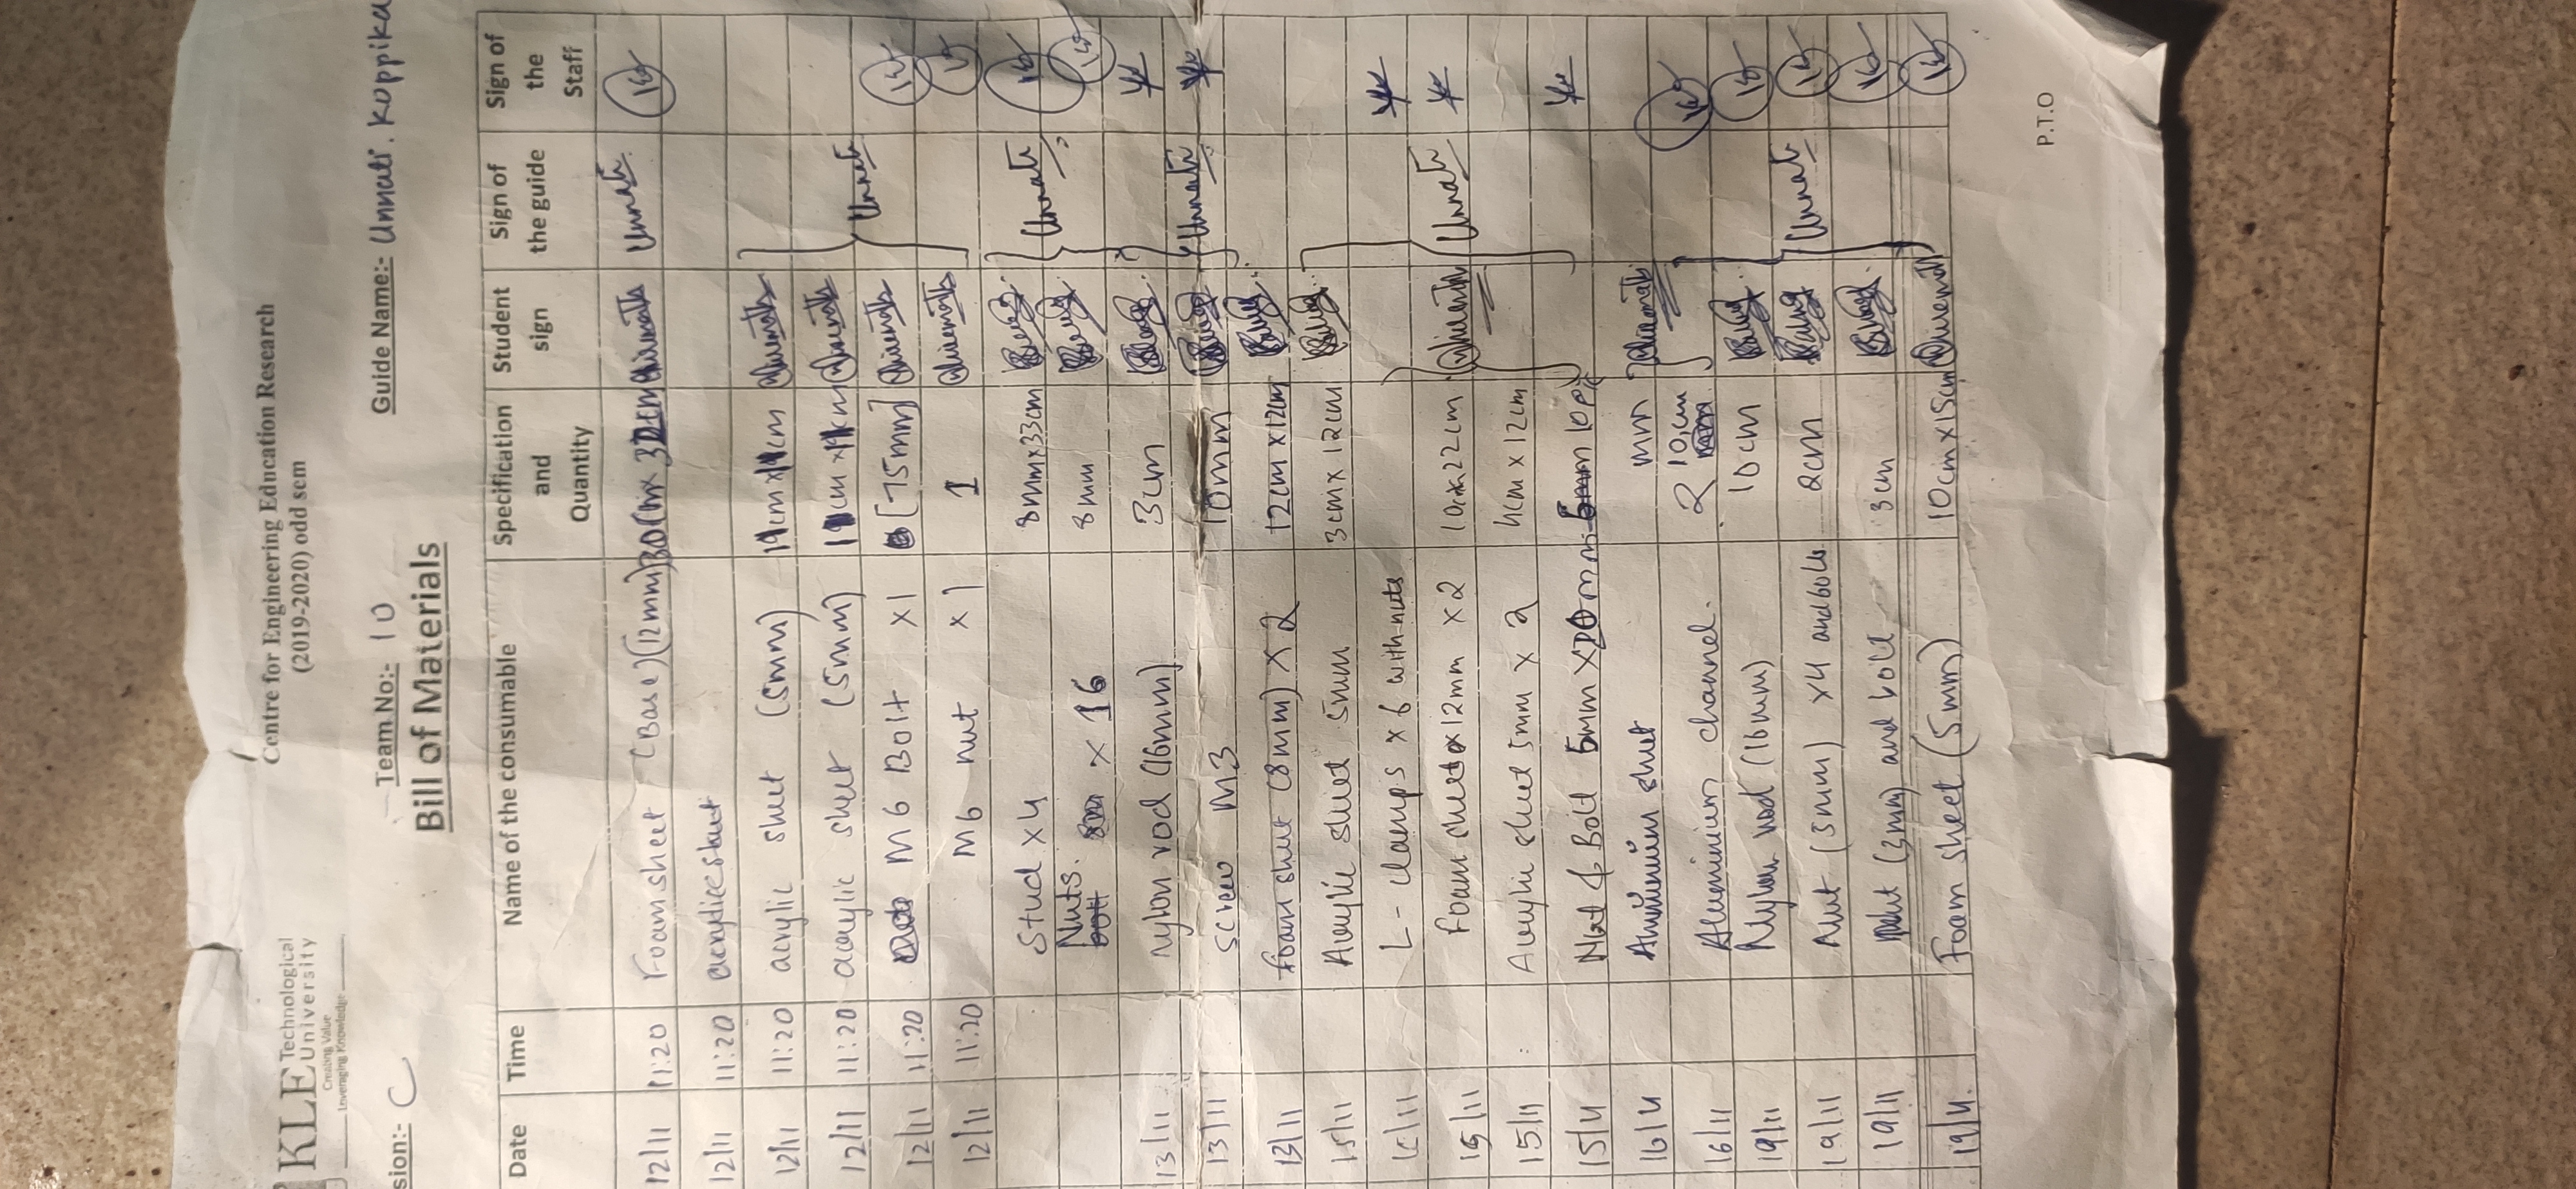 KLE Technological University
Creating Value
Leveraging Knowledge
Centre for Engineering Education Research
(2019-2020) odd sem
sion:- C Team No:- 10 Guide Name:- Unnati. Koppika
Bill of Materials
Date Time Name of the consumable Specification and Quantity Student sign Sign of the guide Sign of the Staff
12/11 11:20 Foam sheet (Base) (12mm) 30cm x 30cm Hiremath Unnati
12/11 11:20
12/11 11:20 acrylic sheet (5mm) 11cm x 11cm Hiremath
12/11 11:20 acrylic sheet (5mm) 11cm x 11cm Hiremath Unnati
12/11 11:20 M6 Bolt x1 [75mm] Hiremath
12/11 11:20 M6 nut x1 1 Hiremath
Stud x4 8mmx33cm Unnati
Nuts. x 16 8mm
13/11 nylon rod (16mm) 3cm
13/11 screw M3 10mm Unnati
13/11 foam sheet (8mm) x 2 12cm x 12cm
15/11 Acrylic sheet 5mm 3cm x 12cm
15/11 L-clamps x 6 with nuts
15/11 Foam sheet 12mm x2 10cm x 22cm Hiremath Unnati
15/11 Acrylic sheet 5mm x 2 4cm x 12cm
15/11 Nut & Bolt 5mm x 20mm
16/11 Aluminium sheet mm Hiremath
16/11 Aluminium channel. 2 10cm
19/11 Nylon rod (16mm) 10cm
19/11 Nut (3mm) x4 and bolts 2cm Unnati
19/11 Nut (3mm) and bolt 3cm
19/11. Foam sheet (5mm) 10cm x 15cm Hiremath
P.T.O